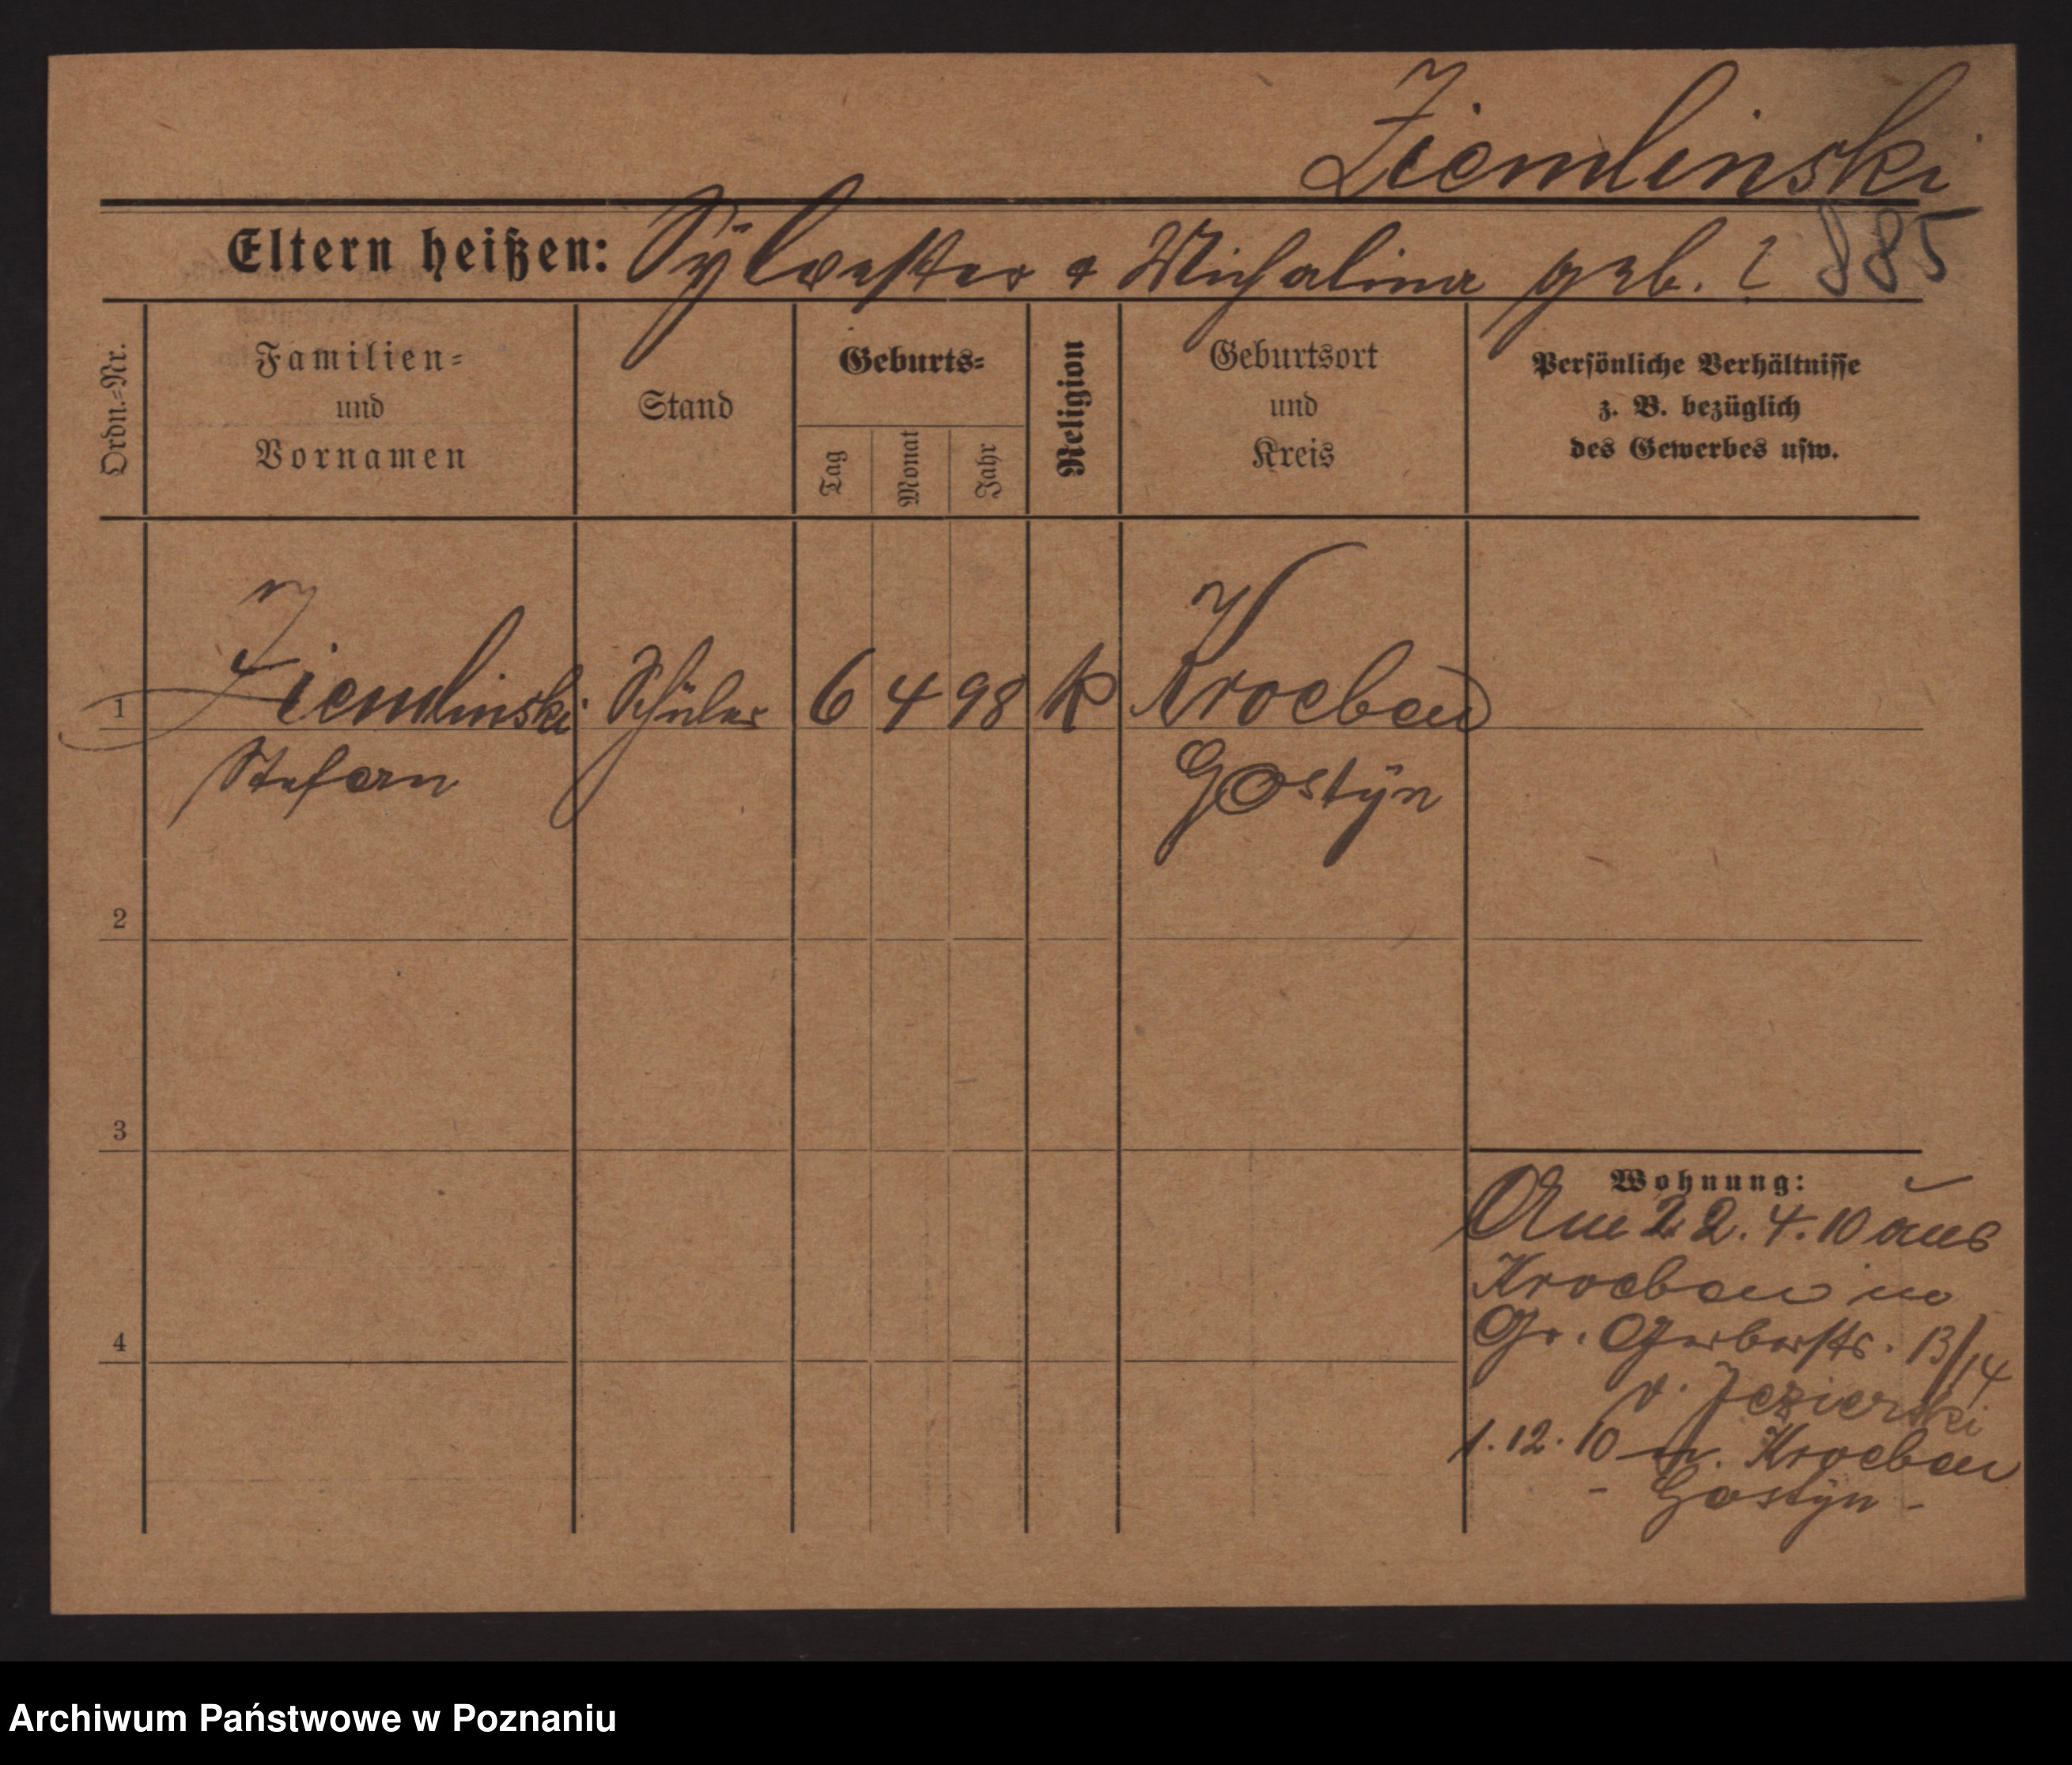 Ziemlinski
Eltern heißen: Sylvester & Michalina geb. ? 885
Ordn.-Nr.
Familien-
und
Vornamen
Stand
Geburts-
Tag
Monat
Jahr
Religion
Geburtsort
und
Kreis
Persönliche Verhältnisse
z. B. bezüglich
des Gewerbes usw.
1 Ziemlinski Schüler 6 4 98 k Kroeben
Stefan Gostyn
2
3
4
Wohnung:
Am 22.4.10 aus
Kroeben in
Gr. Gerberstr. 13/14
b. Jezierski
1.12.10 n. Kroeben
- Gostyn -
Archiwum Państwowe w Poznaniu